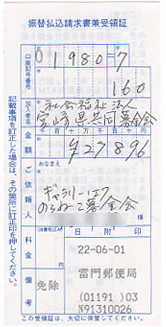 振替払込請求書兼受領証
口座記号番号
01980-7
160
加入者名
社会福祉法人
宮崎県共同募金会
金額
千百十万千百十円
¥27896
ご依頼人
おなまえ
ギャラリー・イワフ
のらねこ募金会
料金
免除
備考
日附印
22-06-01
雷門郵便局
(01191)03
N91310026
この受領証は、大切に保管してください。
記載事項を訂正した場合は、その箇所に訂正印を押してください。